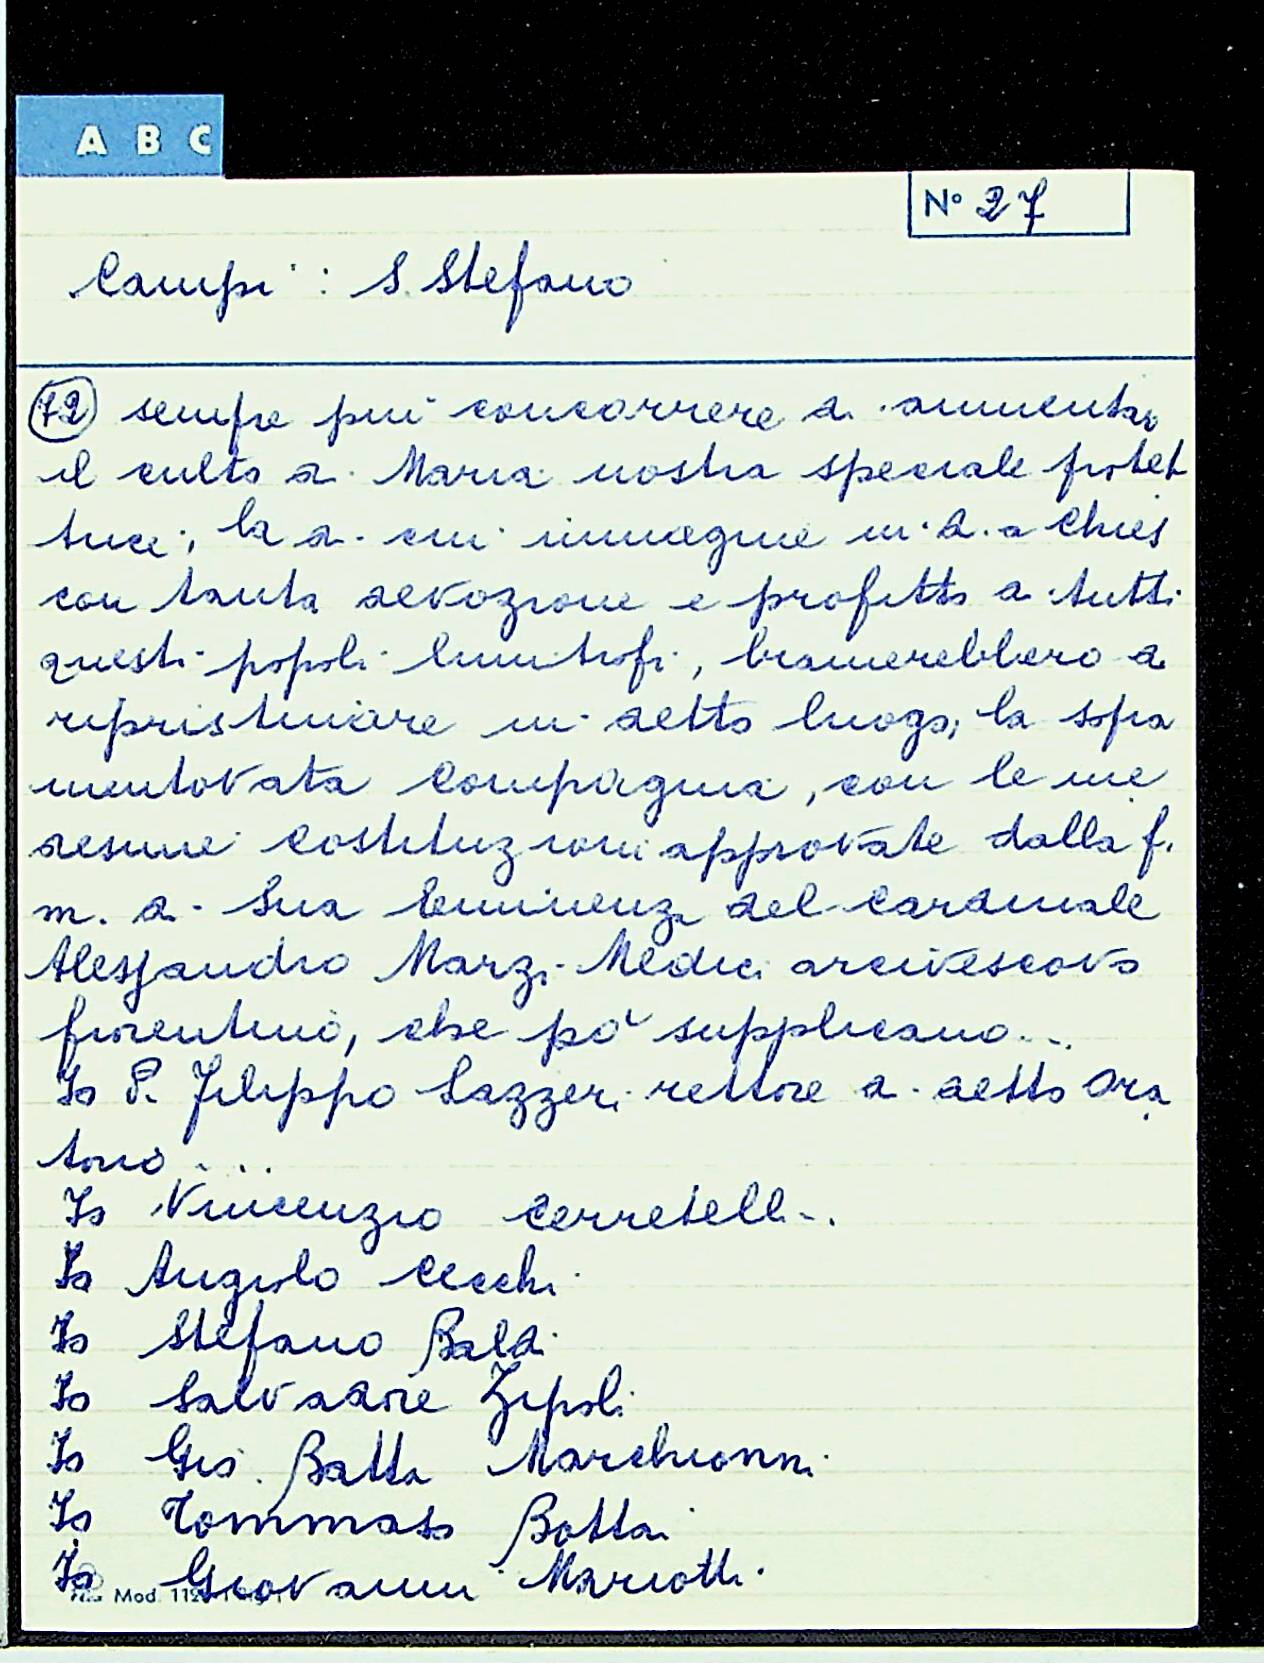 A B C
N° 27
Campi : S. Stefano
72 sempre più concorrere a aumentar
il culto a Maria nostra speciale protet
trice, la di cui immagine in d.a Chies
con tanta devozione e profitto di tutti
questi popoli limitrofi, bramerebbero di
ripristinare in detto luogo, la sopra
mentovata Compagnia, con le me
desime Costituzioni approvate dalla f.
m. di Sua Eminenza del Cardinale
Alessandro Marzi Medici arcivescovo
fiorentino, che però supplicano...
Io P. Filippo Lazzeri rettore di detto Ora
torio ....
Io Vincenzio Cerretelli.
Io Angiolo Cecchi
Io Stefano Baldi
Io Salvadore Zipoli
Io Gio. Batta Marchionni
Io Tommaso Bottai
Io Giovanni Mariotti.
Mod.